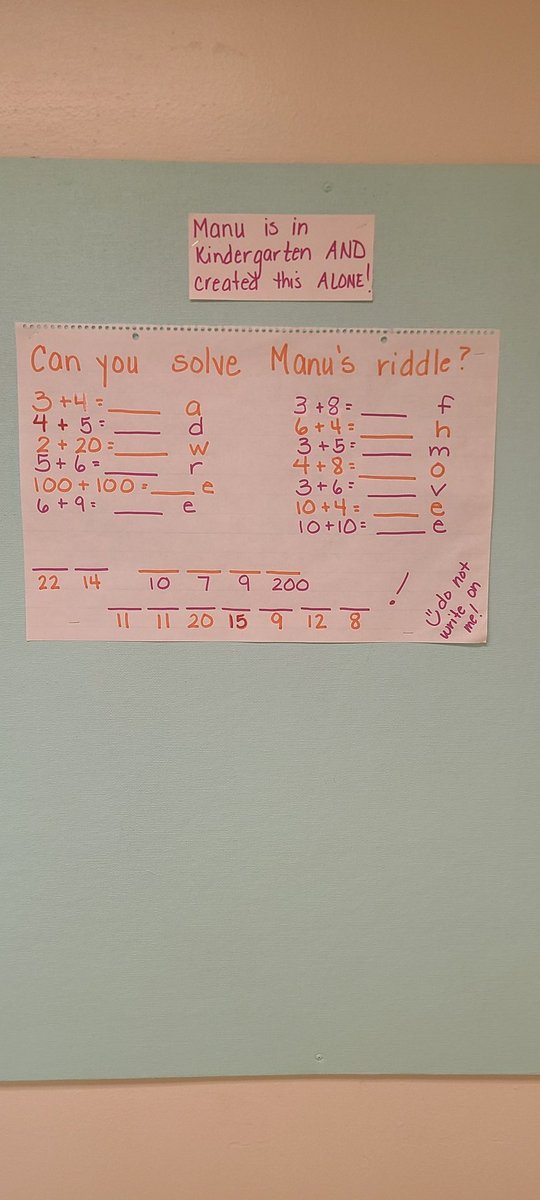 Manu is in
Kindergarten AND
created this ALONE!
Can you solve Manu's riddle?
3 +4 = ____ a
4 + 5 = ____ d
2 + 20 = ____ w
5 + 6 = ____ r
100 + 100 = ____ e
6 + 9 = ____ e
3 +8 = ____ f
6 + 4 = ____ h
3 + 5 = ____ m
4 + 8 = ____ o
3 + 6 = ____ v
10 + 4 = ____ e
10 + 10 = ____ e
22 14 10 7 9 200
11 11 20 15 9 12 8 !
do not
write on
me!